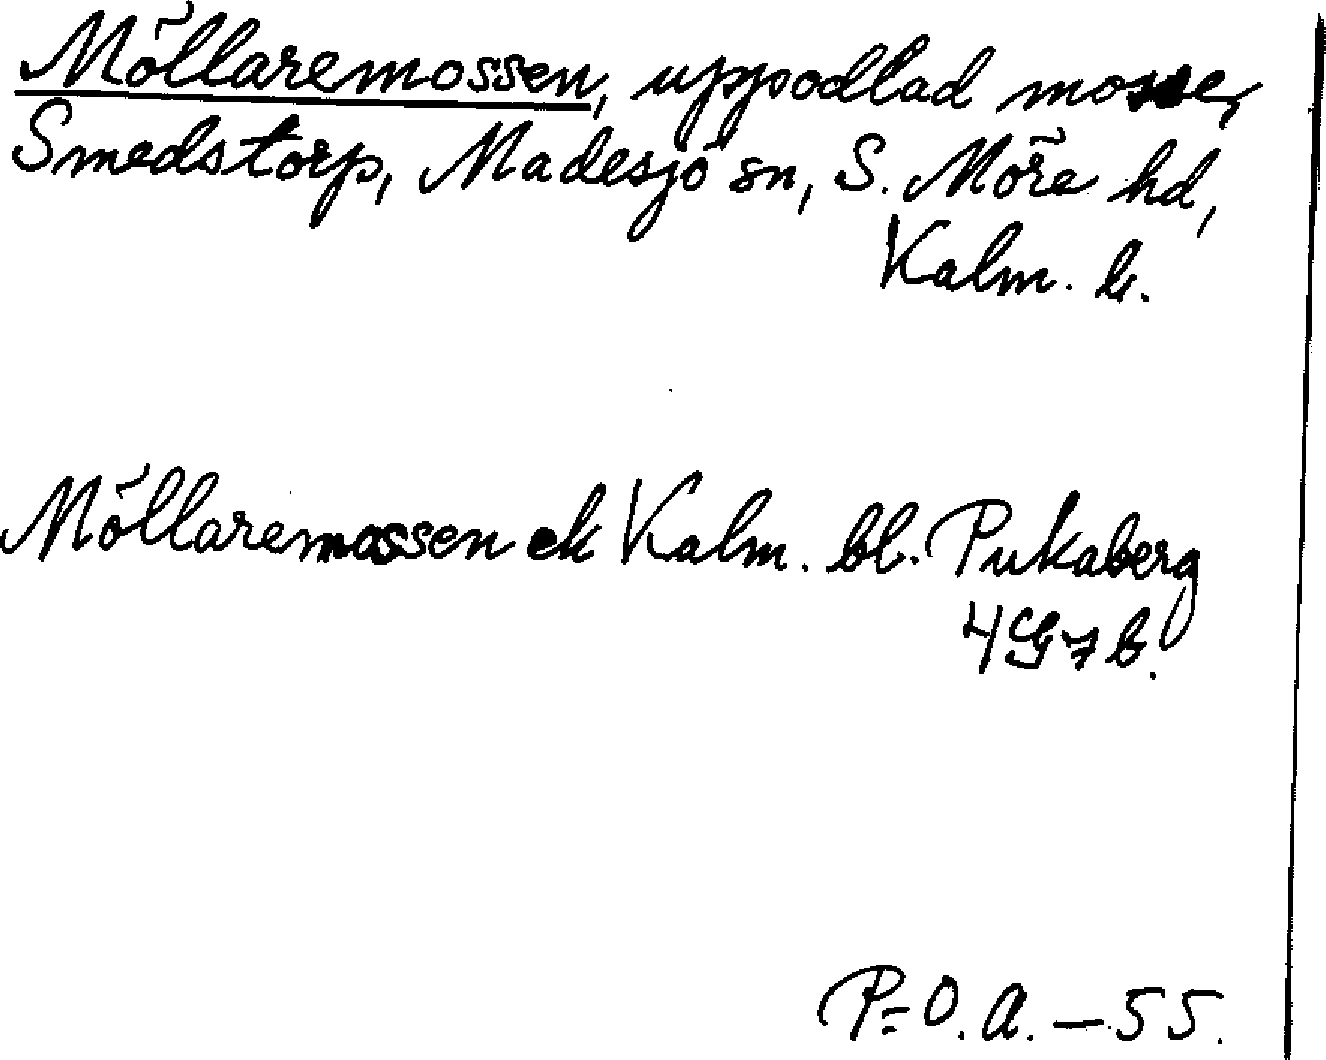 Möllaremossen, uppodlad mosse,
Smedstorp, Madesjö sn, S. Möre hd,
Kalm. l.
Möllaremossen ek Kalm. bl. Pukaberg
4G7b.
P=O.A.–55.